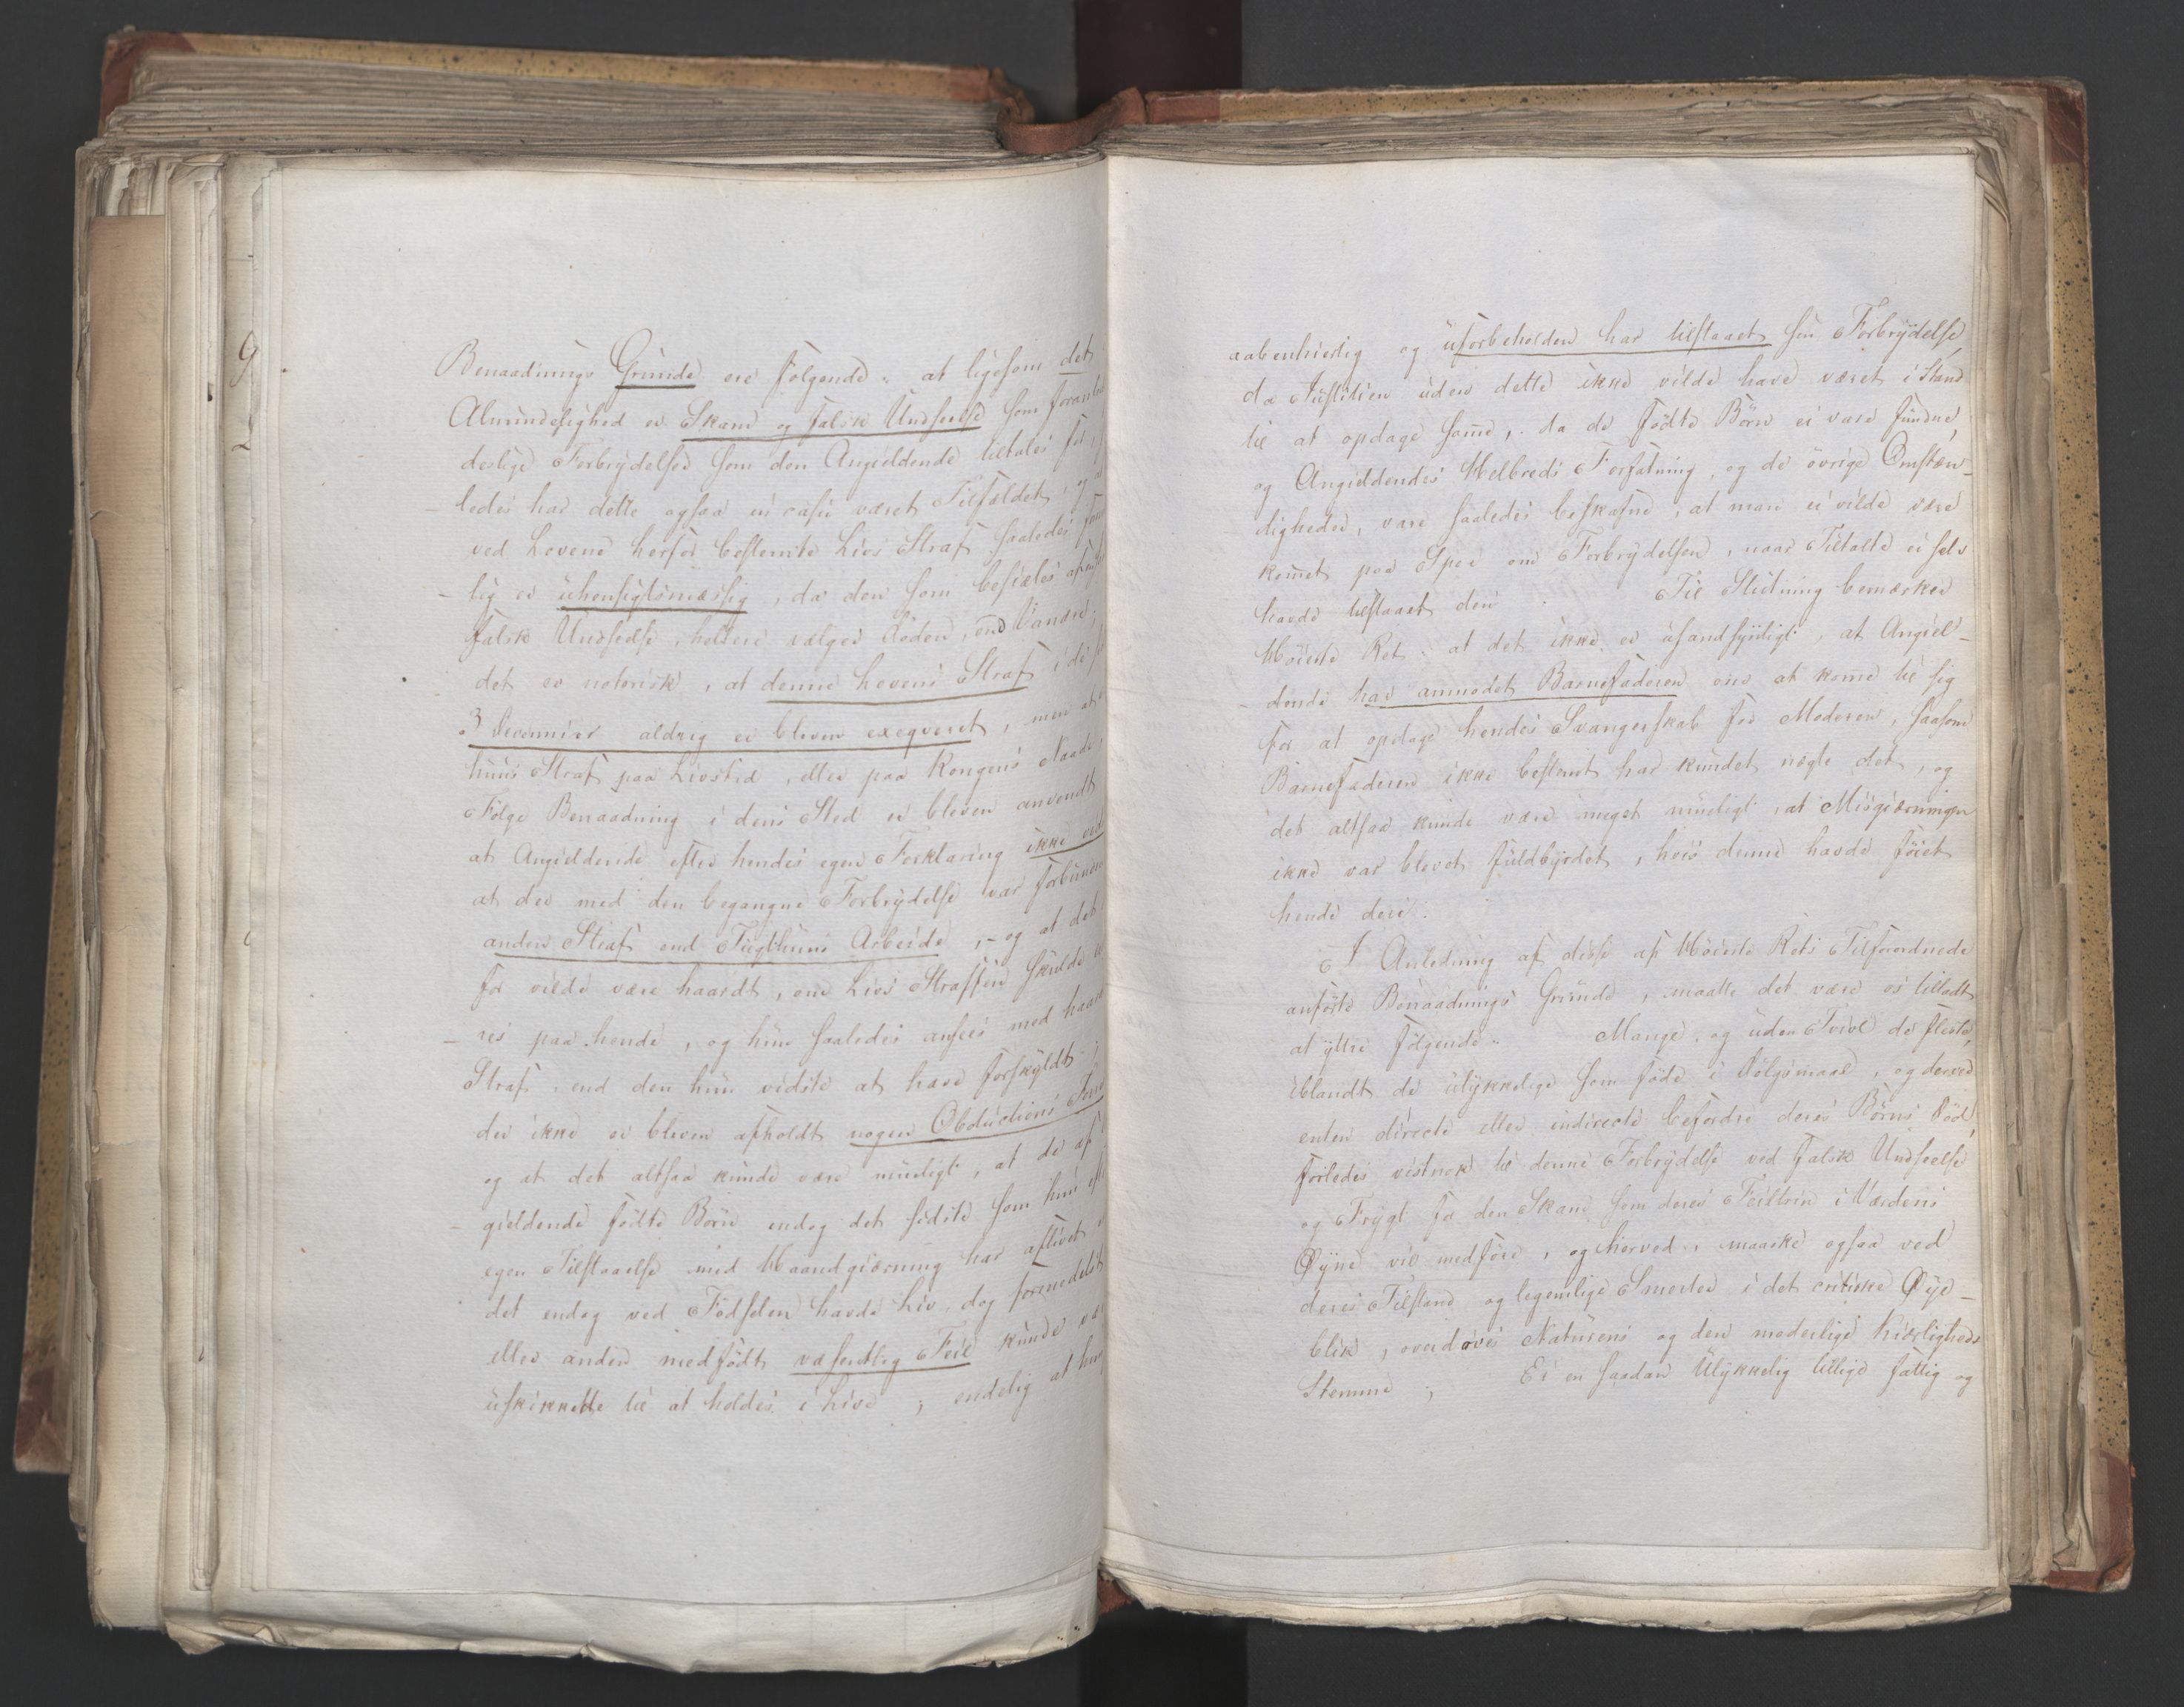 Benaadnings Grunde ere følgende: at ligesom det
Almindelighed er Skam og falsk Undseelse som foranle
deslige Forbrydelser som den Angieldende tiltales for,
ledes har dette ogsaa in casu været Tilfældet, og
ved Lovene herfor bestemte Livs Straf saaledes
lig er uhensigtsmæssig, da den som besiæles af
falsk Undseelse, hellere vælger Døden, end Vanære;
det er notorisk, at denne Lovens Straf i de
3 Decennier aldrig er bleven exeqveret, men at
huus Straf paa Livstid, eller paa Kongens Naade,
Følge Benaadning i dens Sted er bleven anvendt
at Angieldende efter hendes egen Forklaring ikke
at der med den begangne Forbrydelse var forbunden
anden Straf end Tugthuus Arbeide, - og at det
for vilde være haardt, om Livs Straffen skulde
res paa hende, og hun saaledes ansees med haar
Straf, end den hun vidste at have forskyldt;
der ikke er bleven afholdt nogen Obductions
og at det altsaa kunde være mueligt, at de af
gieldende fødte Børn endog det sidste som hun
egen Tilstaaelse med Haandgierning har aflivet
det endog ved Fødselen havde Liv, dog formedelst
eller anden medfødt væsendtlig Feil kunde væ
uskikkede til at holdes i Live; endelig at hun
aabenhiertig og uforbeholden har tilstaaet sin Forbrydelse,
da Justitien uden dette ikke vilde have været i Stand
til at opdage same, da de fødte Børn ei vare fundne,
og Angieldendes Helbreds Forfatning, og de øvrige Omstæn-
digheder, vare saaledes beskafne, at man ei vilde være
komet paa Spor om Forbrydelsen, naar Tiltalte ei selv
havde tilstaaet den. Til Slutning bemærker
Høieste Ret: at det ikke er usandsynligt, at Angiel-
dende har anmodet Barnefaderen om at kome til sig
for at opdage hendes Svangerskab for Moderen, saasom
Barnefaderen ikke bestemt har kundet nægte det, og
det altsaa kunde være meget mueligt, at Misgierningen
ikke var blevet fuldbyrdet, hvis denne havde føiet
hende deri.
I Anledning af disse af Høieste Rets Tilforordnede
anførte Benaadnings Grunde, maatte det være os tilladt
at yttre følgende: Mange, og uden Tvivl de fleste,
iblandt de ulykkelige som føde i Dølgsmaal, og derved
enten directe eller indirecte befordre deres Børns Død,
forledes vistnok til denne Forbrydelse ved falsk Undseelse
og Frygt for den Skam som deres Feiltrin i Verdens
Øyne vil medføre, og herved, maaske ogsaa ved
deres Tilstand og legemlige Smerter i det critiske Øye-
blik, overdøves Naturens og den moderlige Kierligheds
Stemme; Er en saadan Ulykkelig tillige fattig og